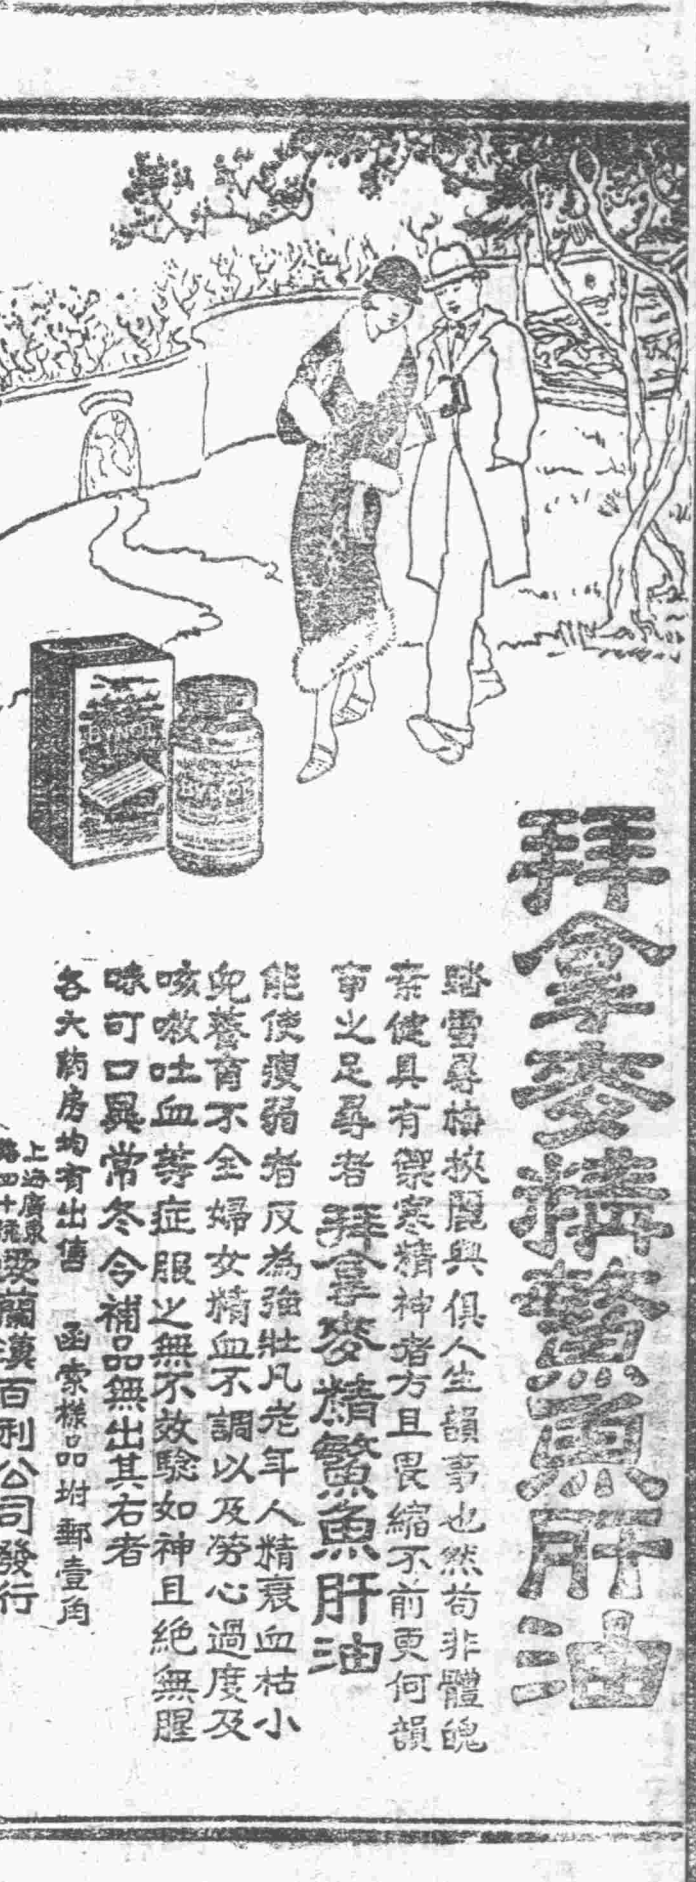 拜拿麥精鰵魚肝油
踏雪尋梅挾麗與俱人生韻事也然苟非體魄
素健具有禦寒精神者方且畏縮不前更何韻
事之足尋者 拜拿麥精鰵魚肝油
能使瘦弱者反為強壯凡老年人精衰血枯小
兒養育不全婦女精血不調以及勞心過度及
咳嗽吐血等症服之無不效驗如神且絕無腥
味可口異常冬令補品無出其右者
各大药房均有出售 函索樣品坿郵壹角
上海廣東
路四十號
愛蘭漢百利公司發行
BYNOL
BYNOL